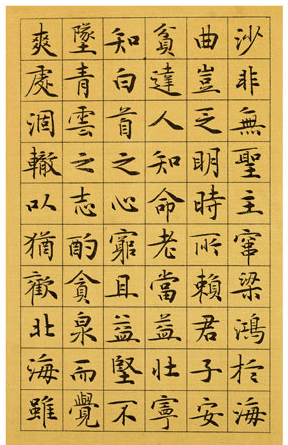 沙非無聖主竄梁鴻於海
曲豈乏明時所賴君子安
貧達人知命老當益壯寧
知白首之心窮且益堅不
墜青雲之志酌貪泉而覺
爽處涸轍以猶歡北海雖